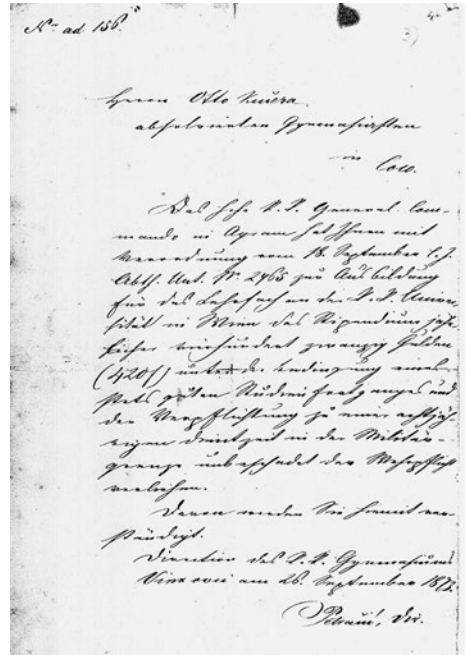 Nro ad 156.
3)
Herrn Otto Kučera
absolvirten Gymnasiasten
in
Loco.
Das hohe k. k. General-Com-
mando in Agram hat Ihnen mit
Verordnung vom 18. September l. J.
Abth. Unt. Nr. 2465 zur Ausbildung
für das Lehrfach an der k. k. Univer-
sität in Wien das Stipendium jähr-
licher vierhundert zwanzig Gulden
(420 f) unter der Bedingung eines
stets guten Studienfortganges und
der Verpflichtung zu einer achtjäh-
rigen Dienstzeit in der Militär-
grenze unbeschadet der Wehrpflicht
verliehen.
Davon werden Sie hiemit ver-
ständigt.
Direction des k. k. Gymnasiums
Vinkovci am 26. September
Dir.